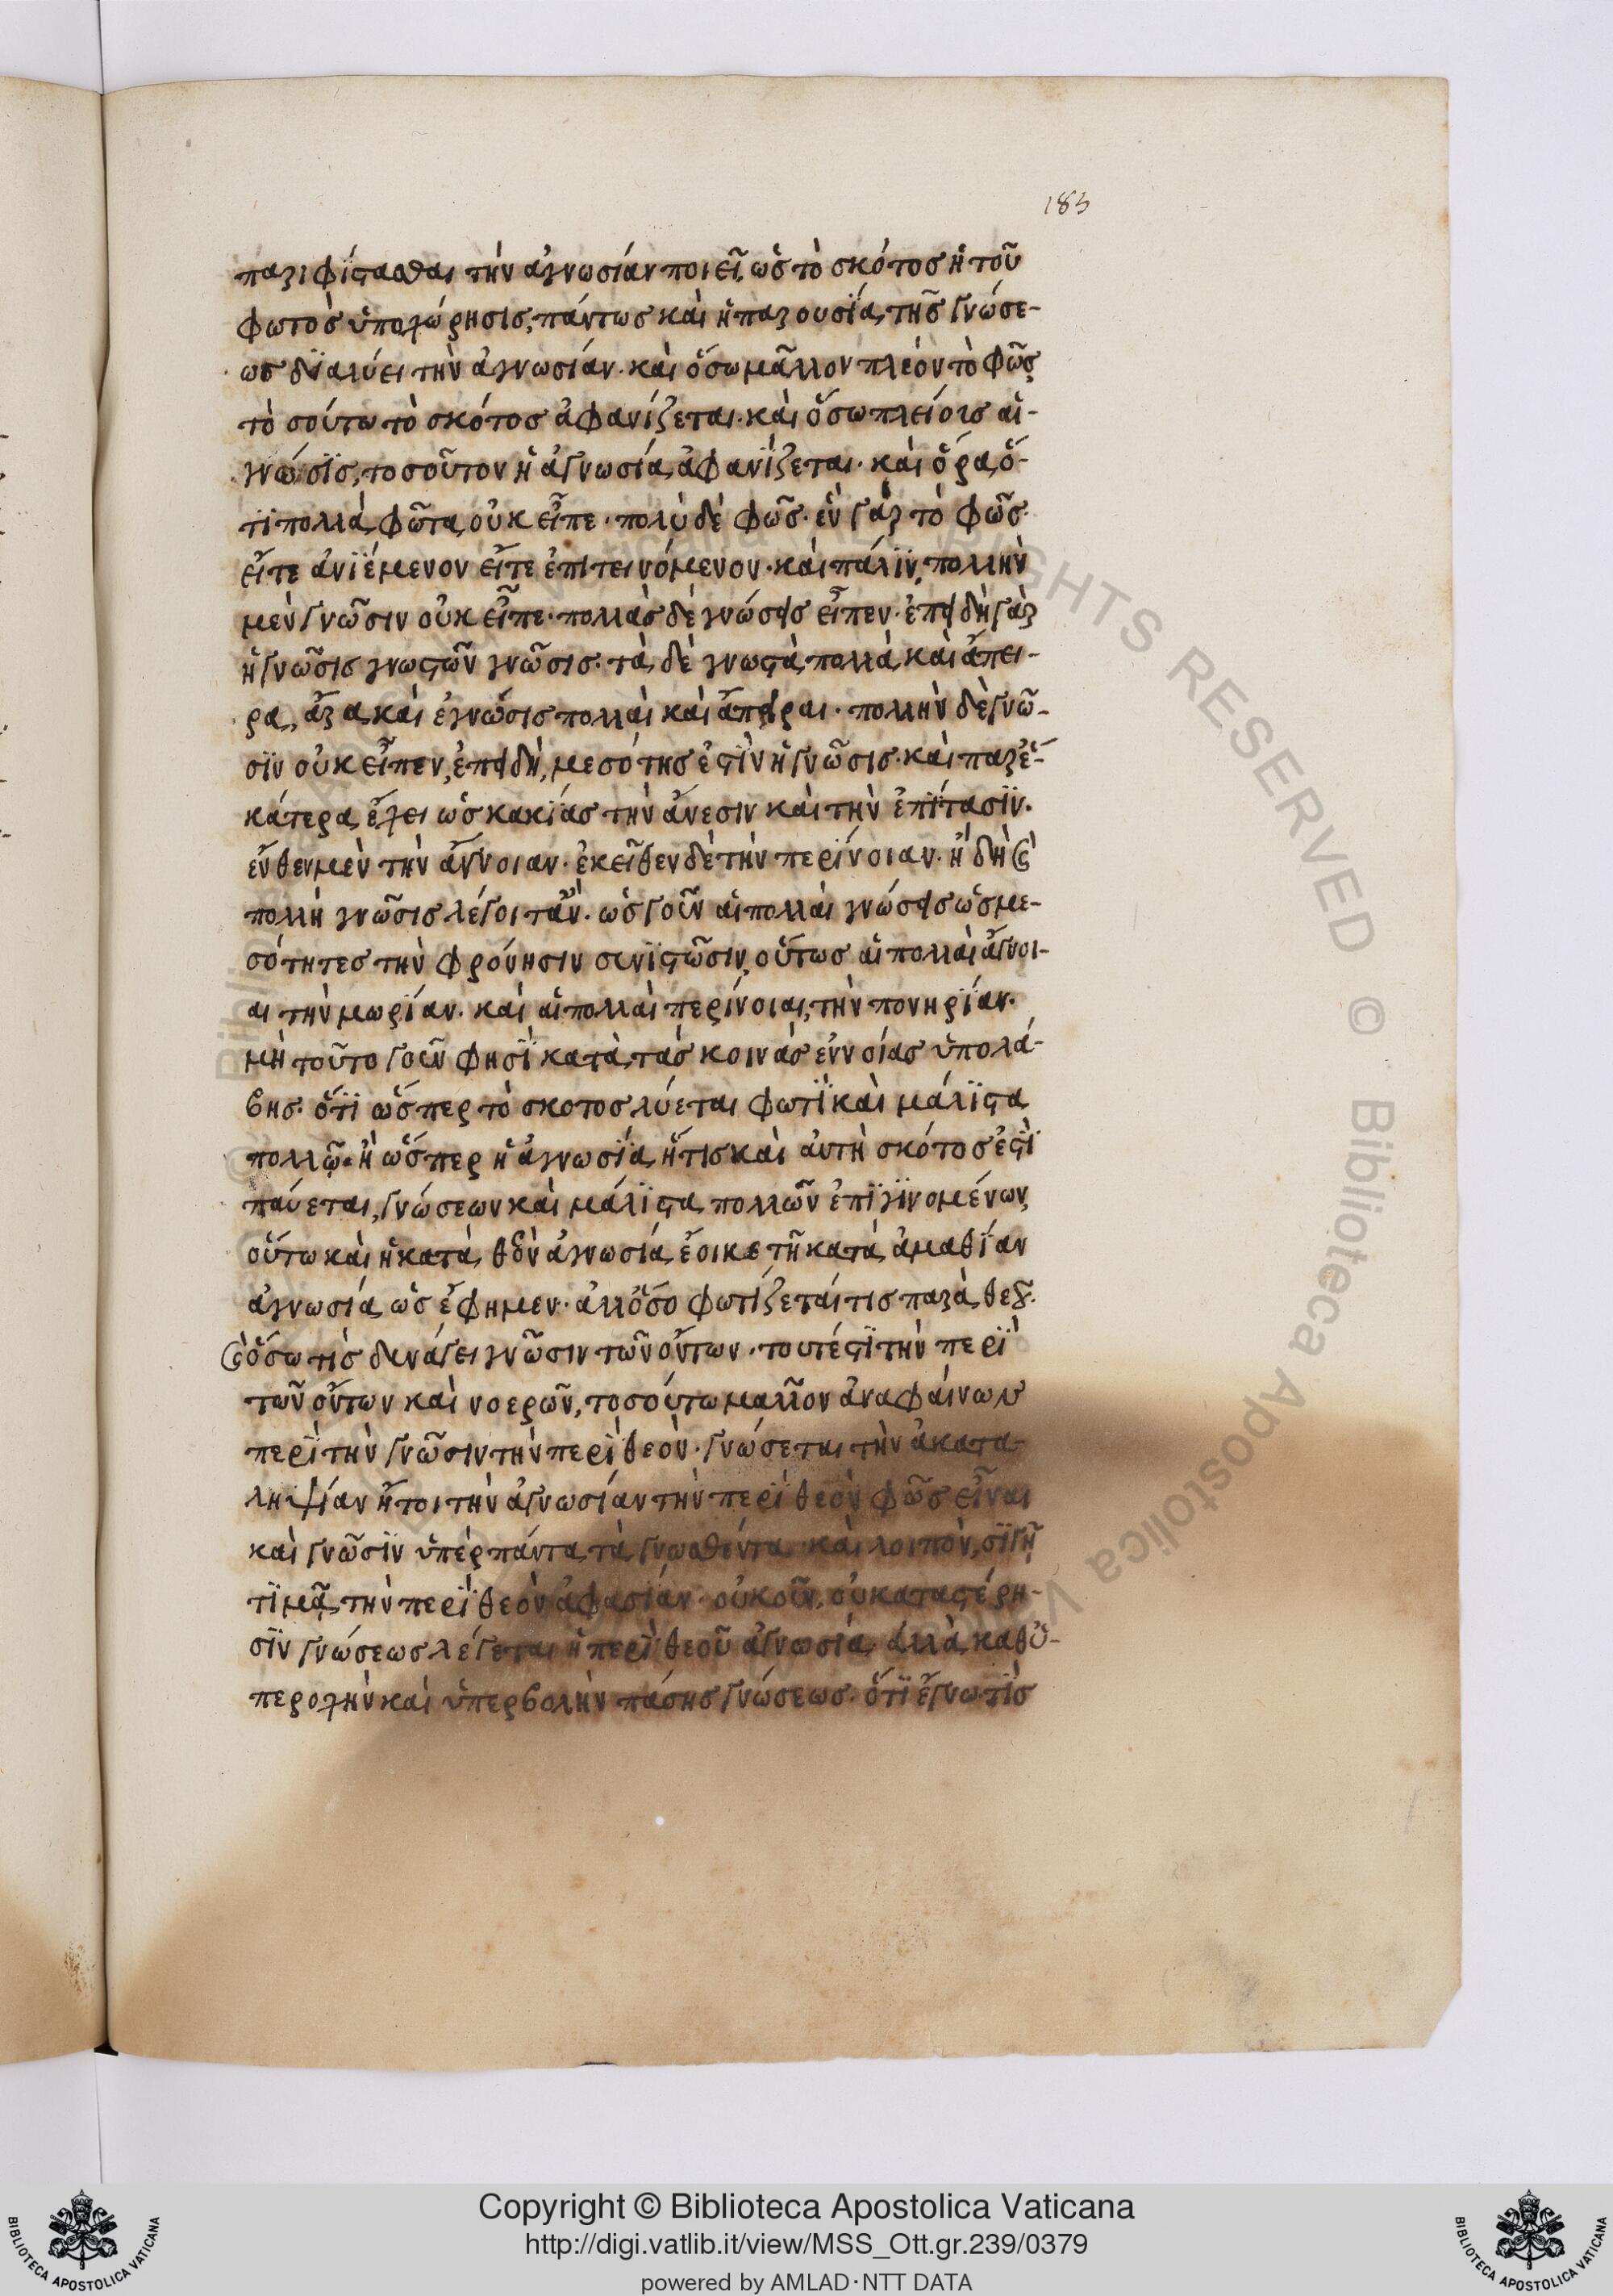 183
παριφίστασθαι τὴν ἀγνωσίαν ποιεῖ, ὡς τὸ σκότος ἡ τοῦ
φωτὸς ὑποχώρησις, πάντως καὶ ἡ παρουσία τῆς γνώσε-
ως διαλύει τὴν ἀγνωσίαν. καὶ ὅσω μᾶλλον πλέον τὸ φῶς
τὸ σούτω τὸ σκότος ἀφανίζεται. καὶ ὅσω πλείοις αἱ-
γνώσϊς, τοσοῦτον ἡ ἀγνωσία ἀφανΐζεται. καὶ ὅρα, ὅ-
τϊ πολλὰ φῶτα οὐκ εἶπε. πολὺ δὲ φῶς. ἓν γὰρ τὸ φῶς.
εἴτε ἀνϊέμενον εἴτε ἐπιτεινόμενον. καὶ πάλϊν, πολλὴν
μὲν γνῶσιν οὐκ εἶπε. πολλὰς δὲ γνώσεις εἶπεν. ἐπειδὴ γὰρ
ἡ γνῶσις γνωστῶν γνῶσις. τὰ δὲ γνωστὰ πολλὰ καὶ ἄπει-
ρα, ἄρα καὶ ἐγνώσις πολλαὶ καὶ ἄπειραι. πολλὴν δὲ γνῶ-
σϊν οὐκ εἶπεν, ἐπειδὴ, μεσότης ἐστὶν ἡ γνῶσις. καὶ παρ' ἑ-
κάτερα ἔχει ὡς κακίας τὴν ἄνεσιν καὶ τὴν ἐπΐτασϊν.
ἔνθεν μὲν τὴν ἄγνοιαν. ἐκεῖθεν δὲ τὴν περίνοιαν. ἣ δὴ καὶ
πολλὴ γνῶσις λέγοιτἂν. ὡς γοῦν αἱ πολλαὶ γνώσεις ὡς με-
σότητες τὴν φρόνησιν συνϊστῶσιν, οὕτως αἱ πολλαὶ ἄγνοι-
αι τὴν μωρίαν. καὶ αἱ πολλαὶ περίνοιαι, τὴν πονηρίαν.
μὴ τοῦτο γοῦν φησῒ κατὰ τὰς κοινὰς ἐννοίας ὑπολά-
βης. ὅτϊ ὥσπερ τὸ σκοτος λύεται φωτῒ καὶ μάλϊστα
πολλῷ. ἢ ὥσπερ ἡ ἀγνωσΐα, ἥτις καὶ αὐτὴ σκότος ἐστῒ
παύεται, γνώσεων καὶ μάλϊστα πολλῶν ἐπϊγϊνομένων,
οὕτω καὶ ἡ κατὰ θεὸν ἀγνωσία ἔοικε τῇ κατὰ ἀμαθίαν
ἀγνωσία, ὡς ἔφημεν. ἀλλ' ὅσο φωτίζεταί τις παρὰ θεοῦ.
καὶ ὅσω τὶς συνάγει γνῶσιν τῶν ὄντων. τουτέστϊ τὴν περῒ
τῶν ὄντων καὶ νοερῶν, τοσούτω μᾶλλον ἀναφαίνων
περῒ τὴν γνῶσιν τὴν περῒ θεὸν. γνώσεται τὴν ἀκατα-
ληψίαν ἤτοι τὴν ἀγνωσίαν τὴν περῒ θεὸν φῶς εἶναι
καὶ γνῶσϊν ὑπὲρ πάντα τὰ γνωσθέντα. καὶ λοιπὸν, σϊγῇ
τϊμᾷ, τὴν περῒ θεὸν ἀφασίαν. οὐκοῦν, οὐ κατὰ στέρη-
σϊν γνώσεως λέγεται ἡ περῒ θεοῦ ἀγνωσία, ἀλλὰ καθ' ὑ-
περοχὴν καὶ ὑπερβολὴν πάσης γνώσεως. ὅτϊ ἔγνω τῒς
Copyright © Biblioteca Apostolica Vaticana
http://digi.vatlib.it/view/MSS_Ott.gr.239/0379
powered by AMLAD·NTT DATA